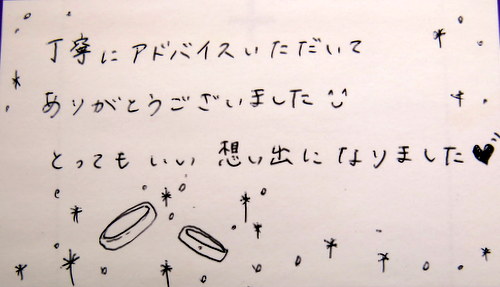 丁寧にアドバイスいただいて
ありがとうございました
とってもいい想い出になりました